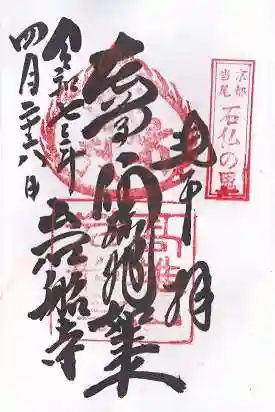 京都
当尾
石仏の里
奉拝
阿弥陀如来
岩船寺
令和七年
四月二十八日